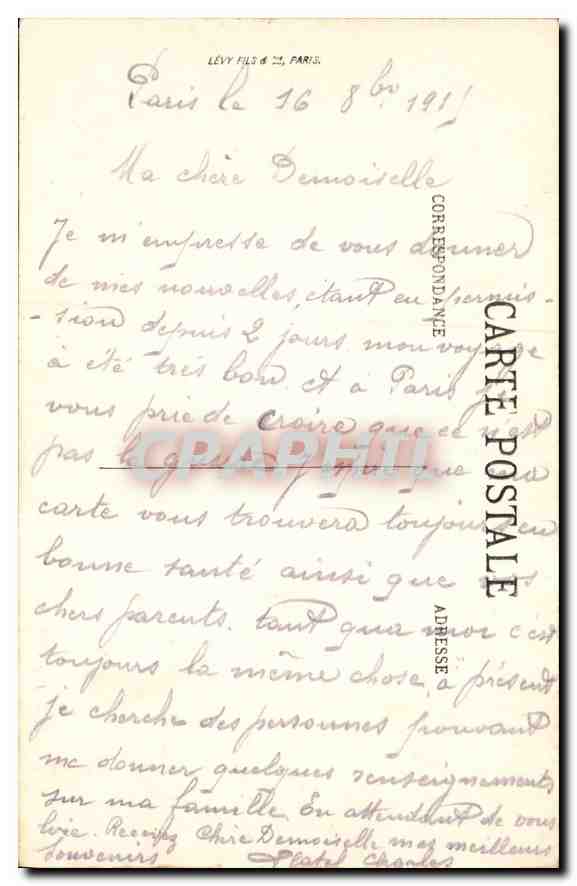 LÉVY FILS & Cie, PARIS.
Paris le 16 8bre 191
Ma chère Demoiselle
Je m'empresse de vous donner
de mes nouvelles, étant en permis-
-sion depuis 2 jours mon voyage
à été très bon. et à Paris je
vous prie de croire que ce n'est
pas la que ma
carte vous trouvera toujours en
bonne santé ainsi que vos
chers parents. tant qua moi c'est
toujours la même chose, à présent
je cherche des personnes pouvant
me donner quelques renseignements
sur ma famille. En attendant de vous
lire. Recevez Chère Demoiselle mes meilleurs
souvenirs Charles
CORRESPONDANCE
ADRESSE
CARTE POSTALE
CPAPHIL